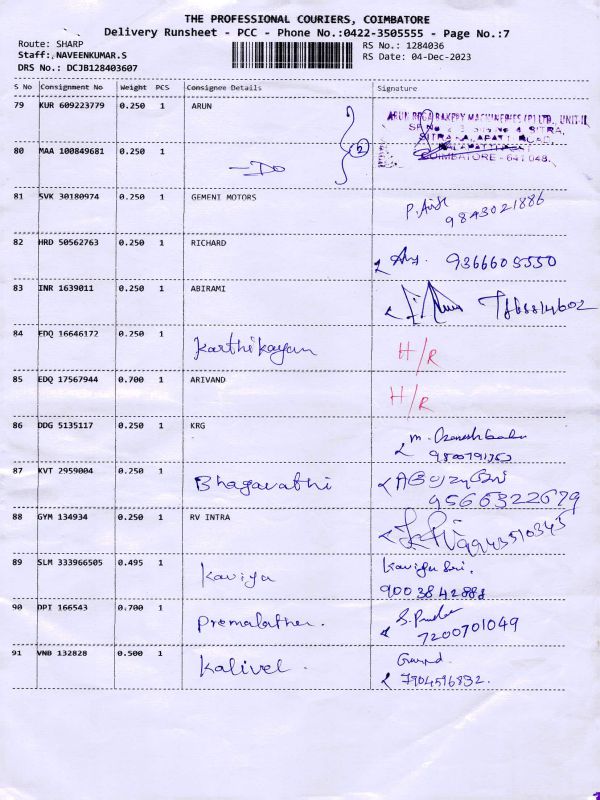 THE PROFESSIONAL COURIERS, COIMBATORE
Delivery Runsheet - PCC - Phone No.:0422-3505555 - Page No.:7
Route: SHARP
RS No.: 1284036
Staff: NAVEENKUMAR.S
RS Date: 04-Dec-2023
DRS No.: DCJB128403607
S No Consignment No Weight PCS Consignee Details Signature
79 KUR 609223779 0.250 1 ARUN
UNIT-II,
SITRA,
COIMBATORE - 641 048.
80 MAA 100849681 0.250 1 Do 2
81 SVK 30180974 0.250 1 GEMENT MOTORS
9843021886
82 HRD 50562763 0.250 1 RICHARD
9366605550
83 INR 1639011 0.250 1 ABIRAMI
84 EDQ 16646172 0.250 1 Karthikayan H/R
85 EDQ 17567944 0.700 1 ARIVAND H/R
86 DDG 5135117 0.250 1 KRG
87 KVT 2959004 0.250 1 Bhagavathi
9566322679
88 GYM 134934 0.250 1 RV INTRA
9943510345
89 SLM 333966505 0.495 1 Kaviya Kaviya Sri.
9003842888
90 DPI 166543 0.700 1 Premalatha.
7200701049
91 VNB 132828 0.500 1 Kalivel.
7904596832.